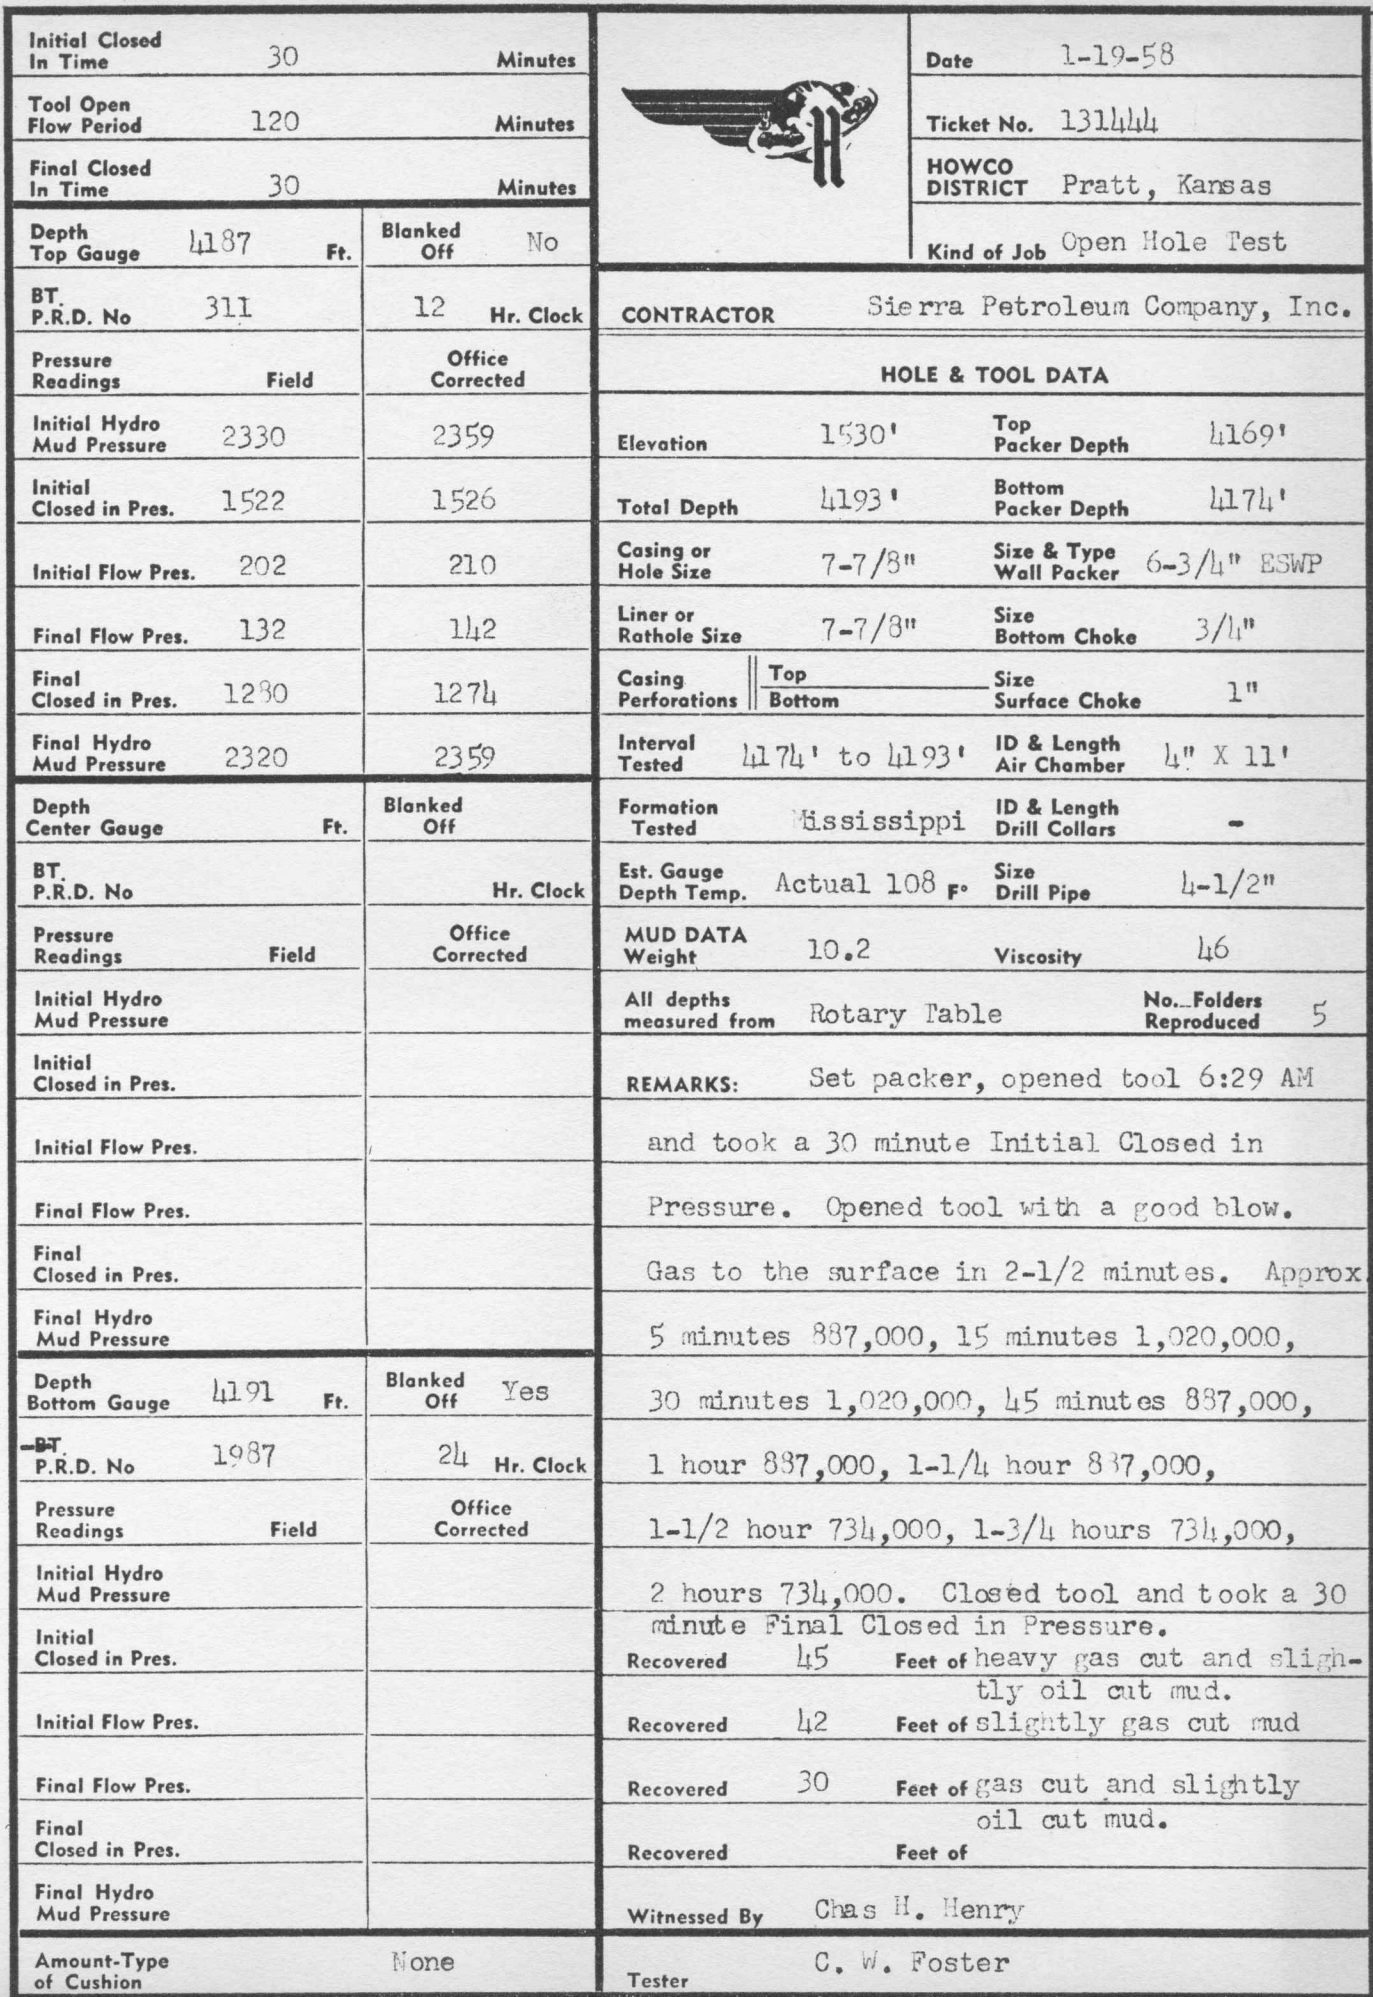 Initial Closed
In Time 30 Minutes
Tool Open
Flow Period 120 Minutes
Final Closed
In Time 30 Minutes
H
Date 1-19-58
Ticket No. 131444
HOWCO
DISTRICT Pratt, Kansas
Kind of Job Open Hole Test
Depth
Top Gauge 4187 Ft.
Blanked
Off No
BT.
P.R.D. No 311
12 Hr. Clock
Pressure
Readings Field
Office
Corrected
Initial Hydro
Mud Pressure 2330 2359
Initial
Closed in Pres. 1522 1526
Initial Flow Pres. 202 210
Final Flow Pres. 132 142
Final
Closed in Pres. 1280 1274
Final Hydro
Mud Pressure 2320 2359
Depth
Center Gauge Ft.
Blanked
Off
BT.
P.R.D. No
Hr. Clock
Pressure
Readings Field
Office
Corrected
Initial Hydro
Mud Pressure
Initial
Closed in Pres.
Initial Flow Pres.
Final Flow Pres.
Final
Closed in Pres.
Final Hydro
Mud Pressure
Depth
Bottom Gauge 4191 Ft.
Blanked
Off Yes
BT.
P.R.D. No 1987
24 Hr. Clock
Pressure
Readings Field
Office
Corrected
Initial Hydro
Mud Pressure
Initial
Closed in Pres.
Initial Flow Pres.
Final Flow Pres.
Final
Closed in Pres.
Final Hydro
Mud Pressure
Amount-Type
of Cushion None
CONTRACTOR Sierra Petroleum Company, Inc.
HOLE & TOOL DATA
Elevation 1530'
Top
Packer Depth 4169'
Total Depth 4193'
Bottom
Packer Depth 4174'
Casing or
Hole Size 7-7/8"
Size & Type
Wall Packer 6-3/4" ESWP
Liner or
Rathole Size 7-7/8"
Size
Bottom Choke 3/4"
Casing
Perforations
Top
Bottom
Size
Surface Choke 1"
Interval
Tested 4174' to 4193'
ID & Length
Air Chamber 4" X 11'
Formation
Tested Mississippi
ID & Length
Drill Collars -
Est. Gauge
Depth Temp. Actual 108 F°
Size
Drill Pipe 4-1/2"
MUD DATA
Weight 10.2
Viscosity 46
All depths
measured from Rotary Table
No. Folders
Reproduced 5
REMARKS: Set packer, opened tool 6:29 AM
and took a 30 minute Initial Closed in
Pressure. Opened tool with a good blow.
Gas to the surface in 2-1/2 minutes. Approx.
5 minutes 887,000, 15 minutes 1,020,000,
30 minutes 1,020,000, 45 minutes 887,000,
1 hour 887,000, 1-1/4 hour 887,000,
1-1/2 hour 734,000, 1-3/4 hours 734,000,
2 hours 734,000. Closed tool and took a 30
minute Final Closed in Pressure.
Recovered 45 Feet of heavy gas cut and sligh-
tly oil cut mud.
Recovered 42 Feet of slightly gas cut mud
Recovered 30 Feet of gas cut and slightly
oil cut mud.
Recovered Feet of
Witnessed By Chas H. Henry
Tester C. W. Foster